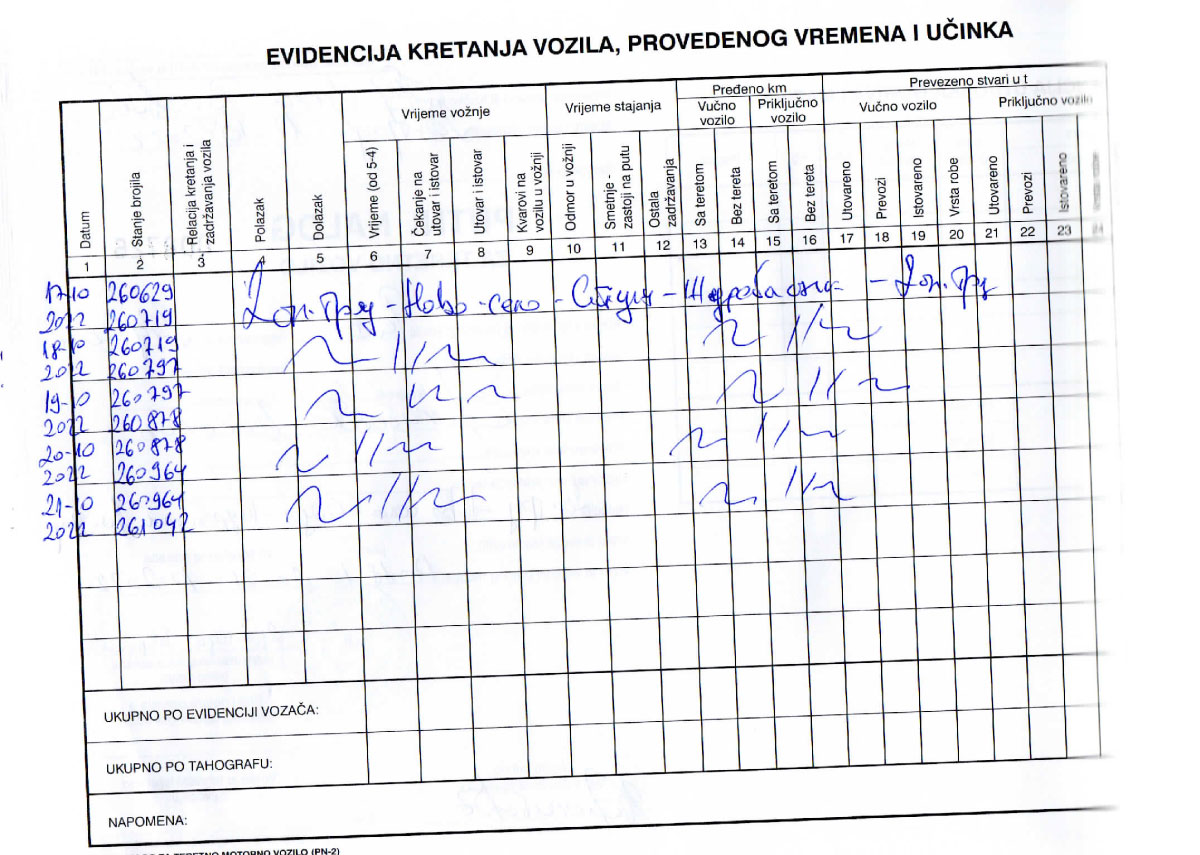 EVIDENCIJA KRETANJA VOZILA, PROVEDENOG VREMENA I UČINKA
Datum
Stanje brojila
Relacija kretanja i zadržavanja vozila
Polazak
Dolazak
Vrijeme vožnje
Vrijeme (od 5-4)
Čekanje na utovar i istovar
Utovar i istovar
Kvarovi na vozilu u vožnji
Vrijeme stajanja
Odmor u vožnji
Smetnje - zastoji na putu
Ostala zadržavanja
Pređeno km
Vučno vozilo
Priključno vozilo
Sa teretom
Bez tereta
Sa teretom
Bez tereta
Prevezeno stvari u t
Vučno vozilo
Priključno vozilo
Utovareno
Prevozi
Istovareno
Vrsta robe
Utovareno
Prevozi
Istovareno
1 2 3 4 5 6 7 8 9 10 11 12 13 14 15 16 17 18 19 20 21 22 23 24
17-10 260629
2022 260719
Ново-село
18-10 260719
2022 260797
19-10 260797
2022 260878
20-10 260878
2022 260964
21-10 260964
2022 261042
UKUPNO PO EVIDENCIJI VOZAČA:
UKUPNO PO TAHOGRAFU:
NAPOMENA:
TERETNO MOTORNO VOZILO (PN-2)